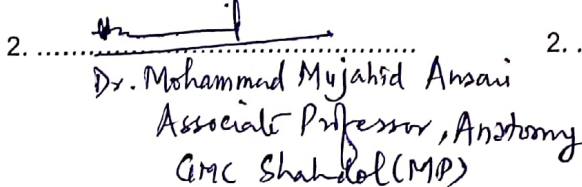 2. .......................................................... 2. .
Dr. Mohammad Mujahid Ansari
Associate Professor, Anatomy
GMC Shahdol (MP)